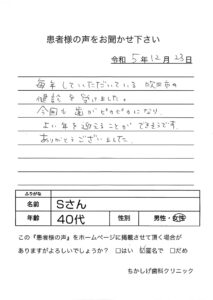 患者様の声をお聞かせ下さい
令和 5年12月23日
毎年していただいている 吹田市の
健診を受けました。
今回も歯がピカピカになり、
よい年を迎えることができそうです。
ありがとうございました。
ふりがな
名前 Sさん
年齢 40代 性別 男性・女性
この『患者様の声』をホームページに掲載させて頂く場合が
ありますがよろしいでしょうか? □はい ☑匿名で □だめ
ちかしげ歯科クリニック